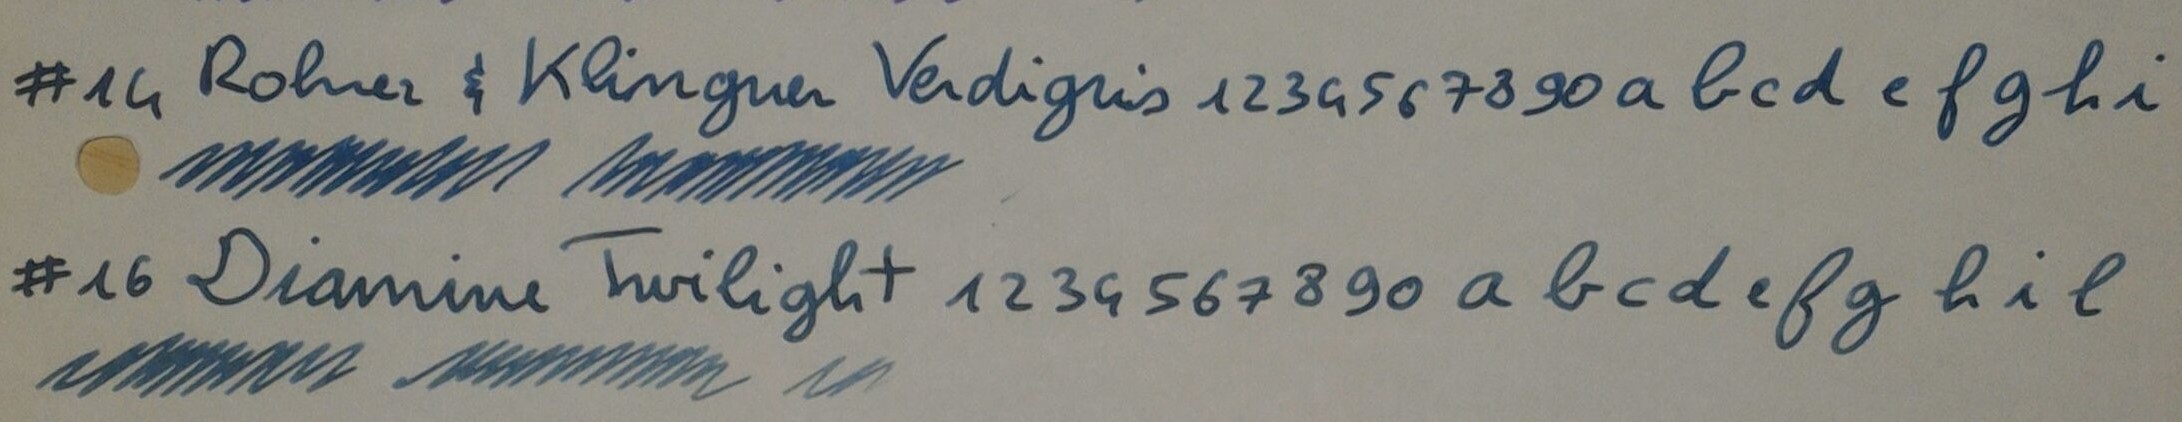 #14 Rohrer & Klinguer Verdigris 1234567890 a b c d e f g h i
#16 Diamine Twilight 1234567890 a b c d e f g h i l